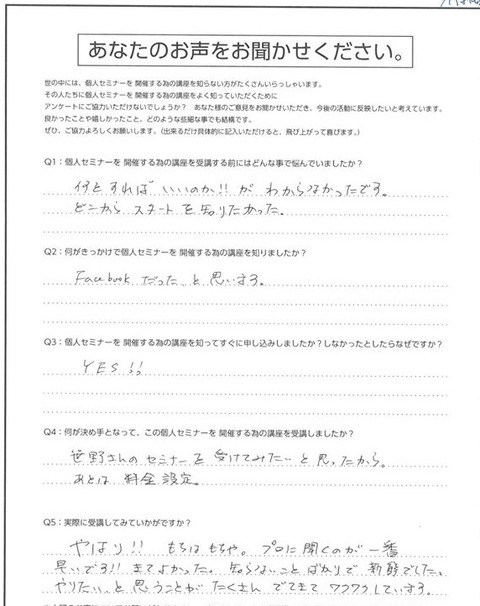 あなたのお声をお聞かせください。
世の中には、個人セミナーを 開催する為の講座を知らない方がたくさんいらっしゃいます。
その人たちに個人セミナーを 開催する為の講座をよく知っていただくために
アンケートにご協力いただけないでしょうか？ あなた様のご意見をお聞かせいただき、今後の活動に反映したいと考えています。
良かったことや嬉しかったこと、どのような些細な事でも結構です。
ぜひ、ご協力よろしくお願いします。（出来るだけ具体的に記入いただけると、飛び上がって喜びます。）
Q1：個人セミナーを 開催する為の講座を受講する前にはどんな事で悩んでいましたか？
何とすれば いいのか!! が わからなかったです。
どこから スタートを 知りたかった。
Q2：何がきっかけで個人セミナーを 開催する為の講座を知りましたか？
Facebook だった と 思います。
Q3：個人セミナーを 開催する為の講座を知ってすぐに申し込みしましたか？しなかったとしたらなぜですか？
YES !!
Q4：何が決め手となって、この個人セミナーを 開催する為の講座を受講しましたか？
笹野さんの セミナーを 受けてみたいと 思ったから。
あとは 料金 設定。
Q5：実際に受講してみていかがですか？
やはり!! もちは もちや。 プロに 聞くのが 一番
早いです!! きてよかった。 知らないこと ばかりで 新鮮でした。
やりたい、と 思うことが たくさん でてきて ワクワクしています。